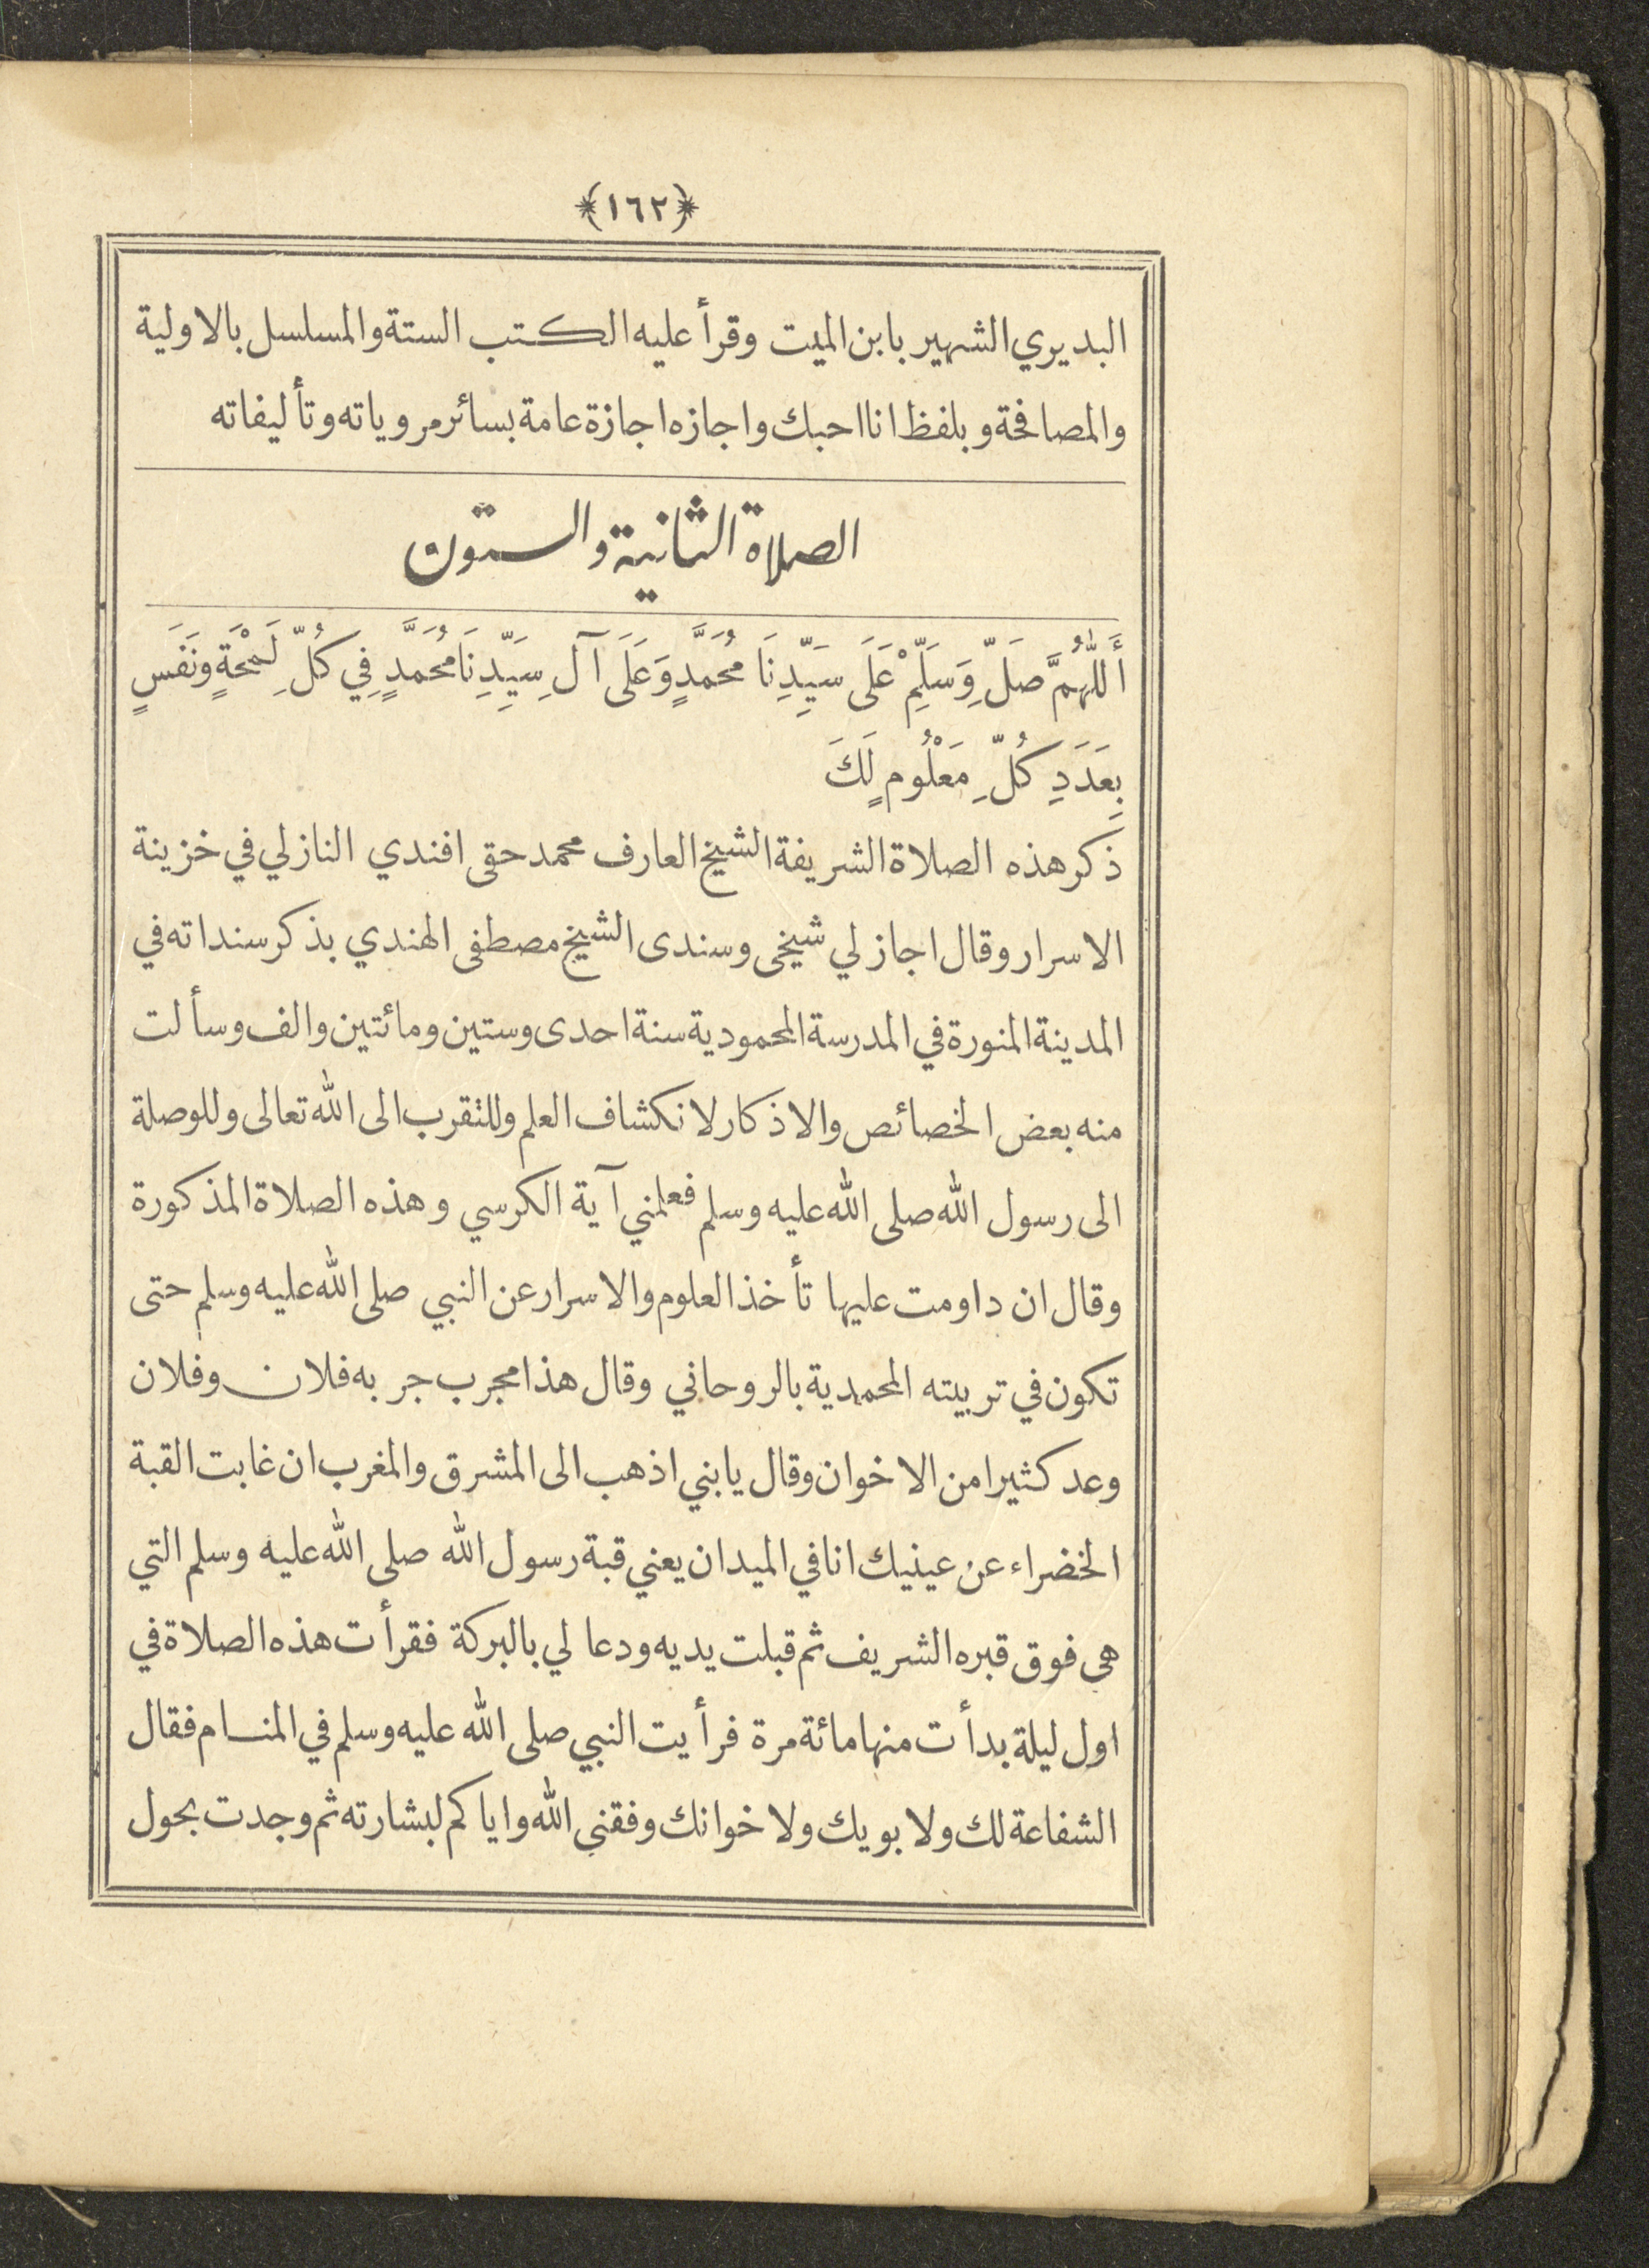 ﴿١٦٢﴾
البديري الشهير بابن الميت وقرأ عليه الكتب الستة والمسلسل بالاولية
والمصافحة وبلفظ انا احبك واجازه اجازة عامة بسائر مروياته وتأليفاته
الصلاة الثانية والستون
أَللّٰهُمَّ صَلِّ وَسَلِّمْ عَلَى سَيِّدِنَا مُحَمَّدٍ وَعَلَى آلِ سَيِّدِنَا مُحَمَّدٍ فِي كُلِّ لَمْحَةٍ وَنَفَسٍ
بِعَدَدِ كُلِّ مَعْلُومٍ لَكَ
ذكر هذه الصلاة الشريفة الشيخ العارف محمد حقى افندي النازلي في خزينة
الاسرار وقال اجاز لي شيخى وسندى الشيخ مصطفى الهندي بذكر سنداته في
المدينة المنورة في المدرسة المحمودية سنة احدى وستين ومائتين والف وسألت
منه بعض الخصائص والاذكار لانكشاف العلم وللتقرب الى الله تعالى وللوصلة
الى رسول الله صلى الله عليه وسلم فعلمني آية الكرسي وهذه الصلاة المذكورة
وقال ان داومت عليها تأخذ العلوم والاسرار عن النبي صلى الله عليه وسلم حتى
تكون في تربيته المحمدية بالروحاني وقال هذا مجرب جربه فلان وفلان
وعد كثيرا من الاخوان وقال يابني اذهب الى المشرق والمغرب ان غابت القبة
الخضراء عن عينيك انا في الميدان يعني قبة رسول الله صلى الله عليه وسلم التي
هى فوق قبره الشريف ثم قبلت يديه ودعا لي بالبركة فقرأت هذه الصلاة في
اول ليلة بدأت منها مائة مرة فرأيت النبي صلى الله عليه وسلم في المنام فقال
الشفاعة لك ولابويك ولاخوانك وفقني الله واياكم لبشارته ثم وجدت بحول